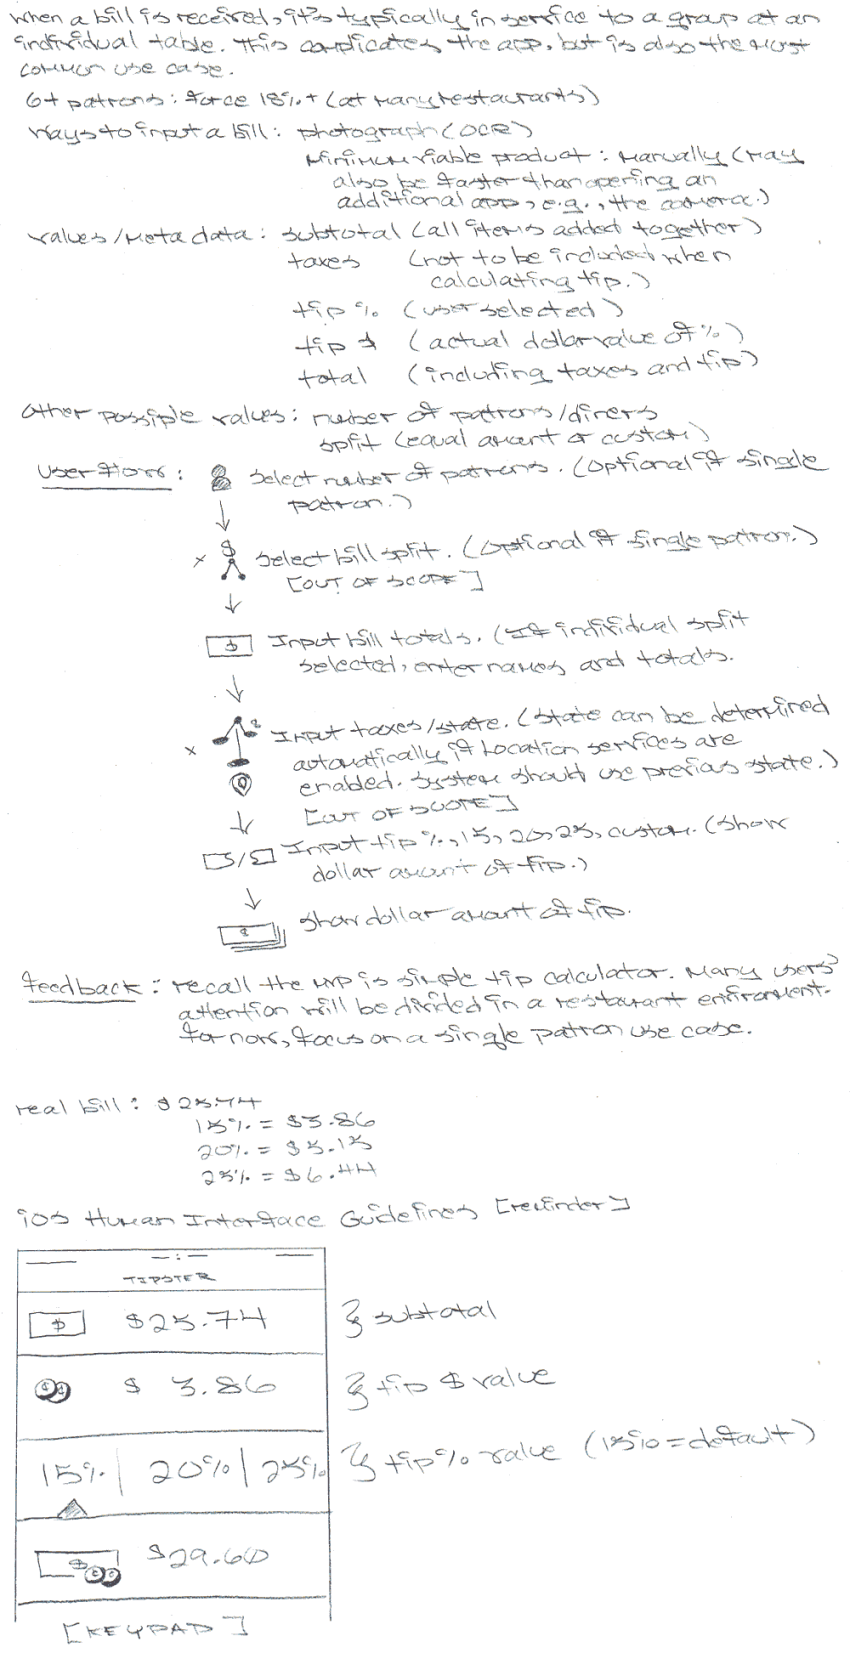 When a bill is received, it's typically in service to a group at an
individual table. This complicates the app, but is also the most
common use case.
6+ patrons: force 18%+ (at many restaurants)
ways to input a bill: photograph (OCR)
Minimum viable product: Manually (May
also be faster than opening an
additional app, e.g., the camera.)
values/Metadata: subtotal (all items added together)
taxes (not to be included when
calculating tip.)
tip % (user selected)
tip $ (actual dollar value of %)
total (including taxes and tip)
Other possible values: number of patrons/diners
split (equal amount or custom)
User flow: Select number of patrons. (Optional if single
patron.)
x $ Select bill split. (Optional if single patron.)
[OUT OF SCOPE]
$ Input bill totals. (If individual split
selected, enter names and totals.
x Input taxes/state. (State can be determined
automatically if Location services are
enabled. System should use previous state.)
[OUT OF SCOPE]
Input tip %, 15, 20, 25, custom. (Show
dollar amount of tip.)
$ Show dollar amount of tip.
feedback: recall the MVP is simple tip calculator. Many users'
attention will be divided in a restaurant environment.
for now, focus on a single patron use case.
real bill: $25.74
15% = $3.86
20% = $5.15
25% = $6.44
iOS Human Interface Guidelines [reminder]
TIPSTER
$ $25.74 } subtotal
$ 3.86 } tip $ value
15% | 20% | 25% } tip % value (15% = default)
$ $29.60
[KEYPAD]